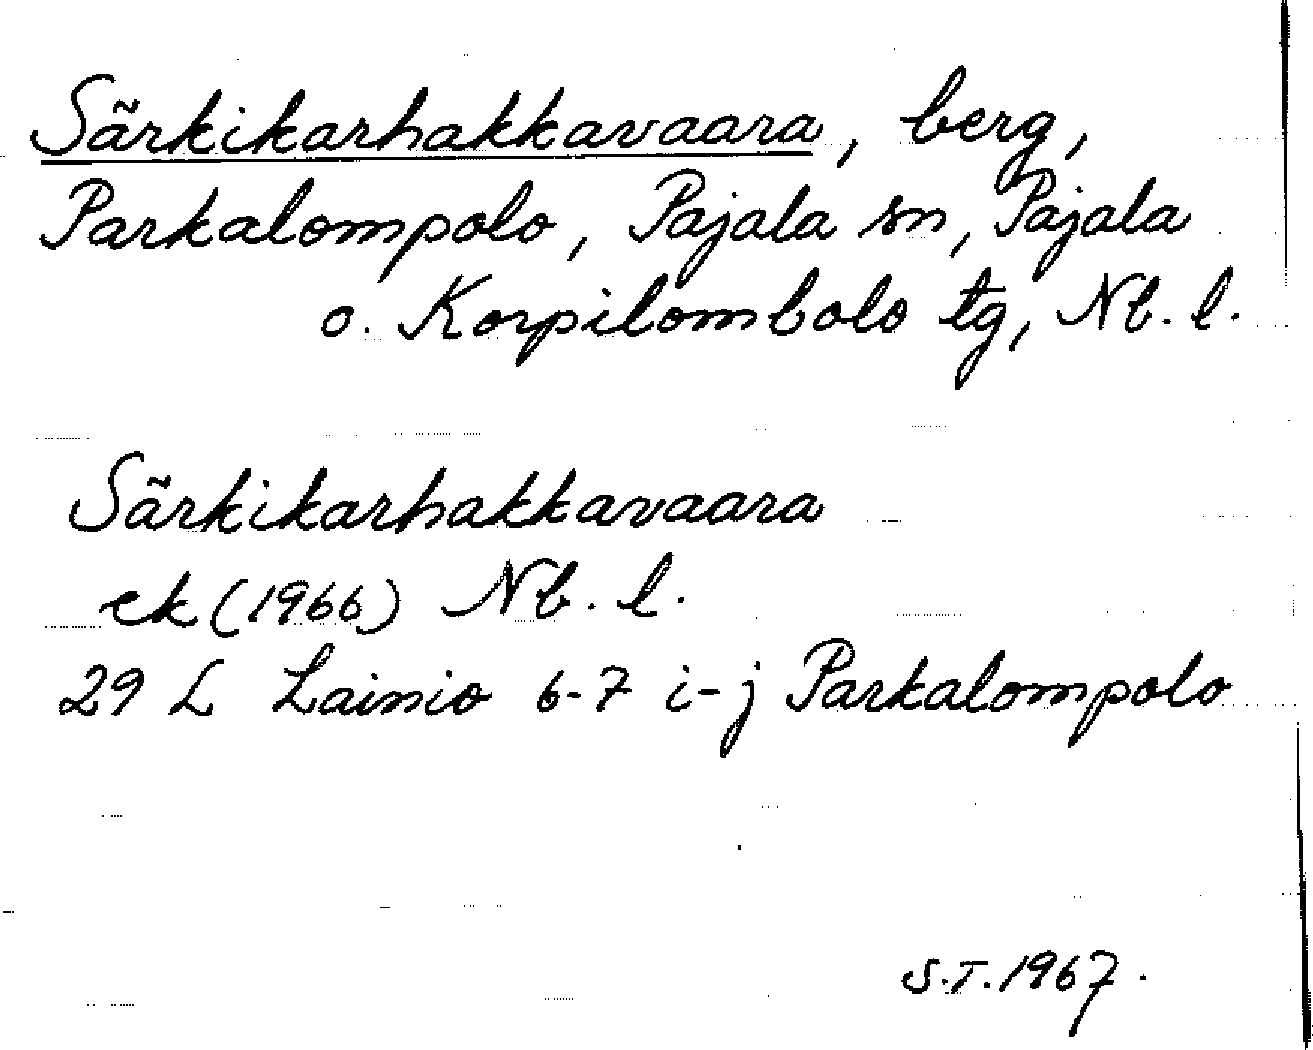 Särkikarhakkavaara, berg,
Parkalompolo, Pajala sn, Pajala
o. Korpilombolo tg, Nb. l.
Särkikarhakkavaara
ek (1966) Nb. l.
29 L Lainio 6-7 i-j Parkalompolo
S.T. 1967.